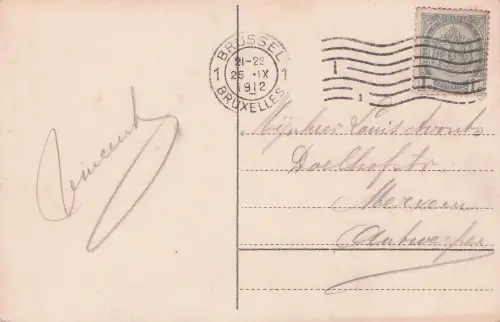 BRUSSEL
21-22
1 25 IX 1
1912
BRUXELLES
1
1
1
Vincent
Mijnheer Louis
Merxem
Antwerpen